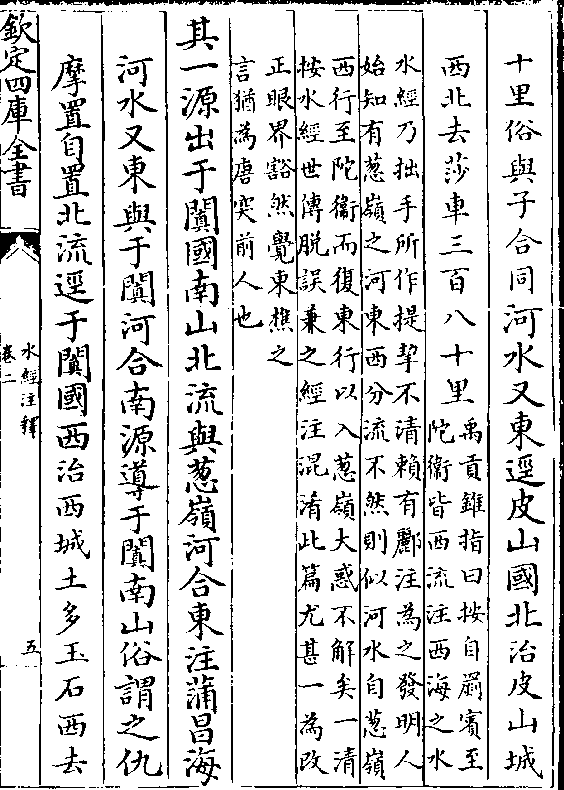 十里俗與子合同河水又東逕皮山國北治皮山城
西北去莎車三百八十里
禹貢錐指曰按自罽賓至
陀衞皆西流注西海之水
水經乃拙手所作提挈不清賴有酈注為之發明人
始知有葱嶺之河東西分流不然則似河水自葱嶺
西行至陀衞而復東行以入葱嶺大惑不解矣一清
按水經世傳脫誤兼之經注混淆此篇尤甚一為改
正眼界豁然覺東樵之
言猶為唐突前人也
其一源出于闐國南山北流與葱嶺河合東注蒲昌海
河水又東與于闐河合南源導于闐南山俗謂之仇
摩置自置北流逕于闐國西治西城土多玉石西去
欽定四庫全書
水經注釋
卷二
五